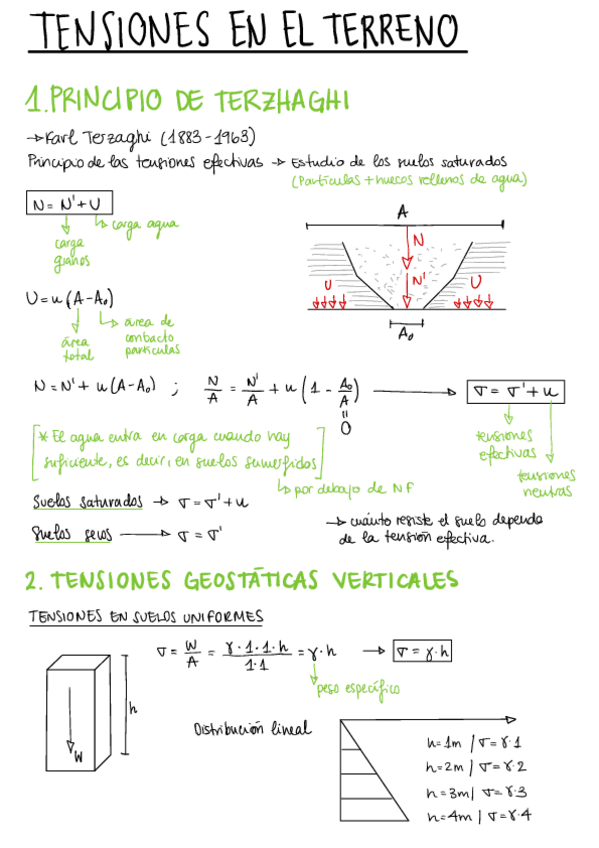 TENSIONES EN EL TERRENO
1. PRINCIPIO DE TERZHAGHI
→ Karl Terzaghi (1883-1963)
Principio de las tensiones efectivas → Estudio de los suelos saturados
(Partículas + huecos rellenos de agua)
N = N' + U
carga agua
carga granos
A
N
N'
U
U
A₀
U = u (A - A₀)
área de contacto partículas
área total
N = N' + u (A - A₀) ; N/A = N'/A + u (1 - A₀/A) → σ = σ' + u
=
0
tensiones efectivas
tensiones neutras
* El agua entra en carga cuando hay
suficiente, es decir, en suelos sumergidos
→ por debajo de NF
Suelos saturados → σ = σ' + u
Suelos secos → σ = σ'
→ cuánto resiste el suelo depende
de la tensión efectiva.
2. TENSIONES GEOSTÁTICAS VERTICALES
TENSIONES EN SUELOS UNIFORMES
σ = W/A = γ·1·1·h / 1·1 = γ·h → σ = γ·h
peso específico
h
W
Distribución lineal
h=1m / σ=γ·1
h=2m / σ=γ·2
h=3m / σ=γ·3
h=4m / σ=γ·4